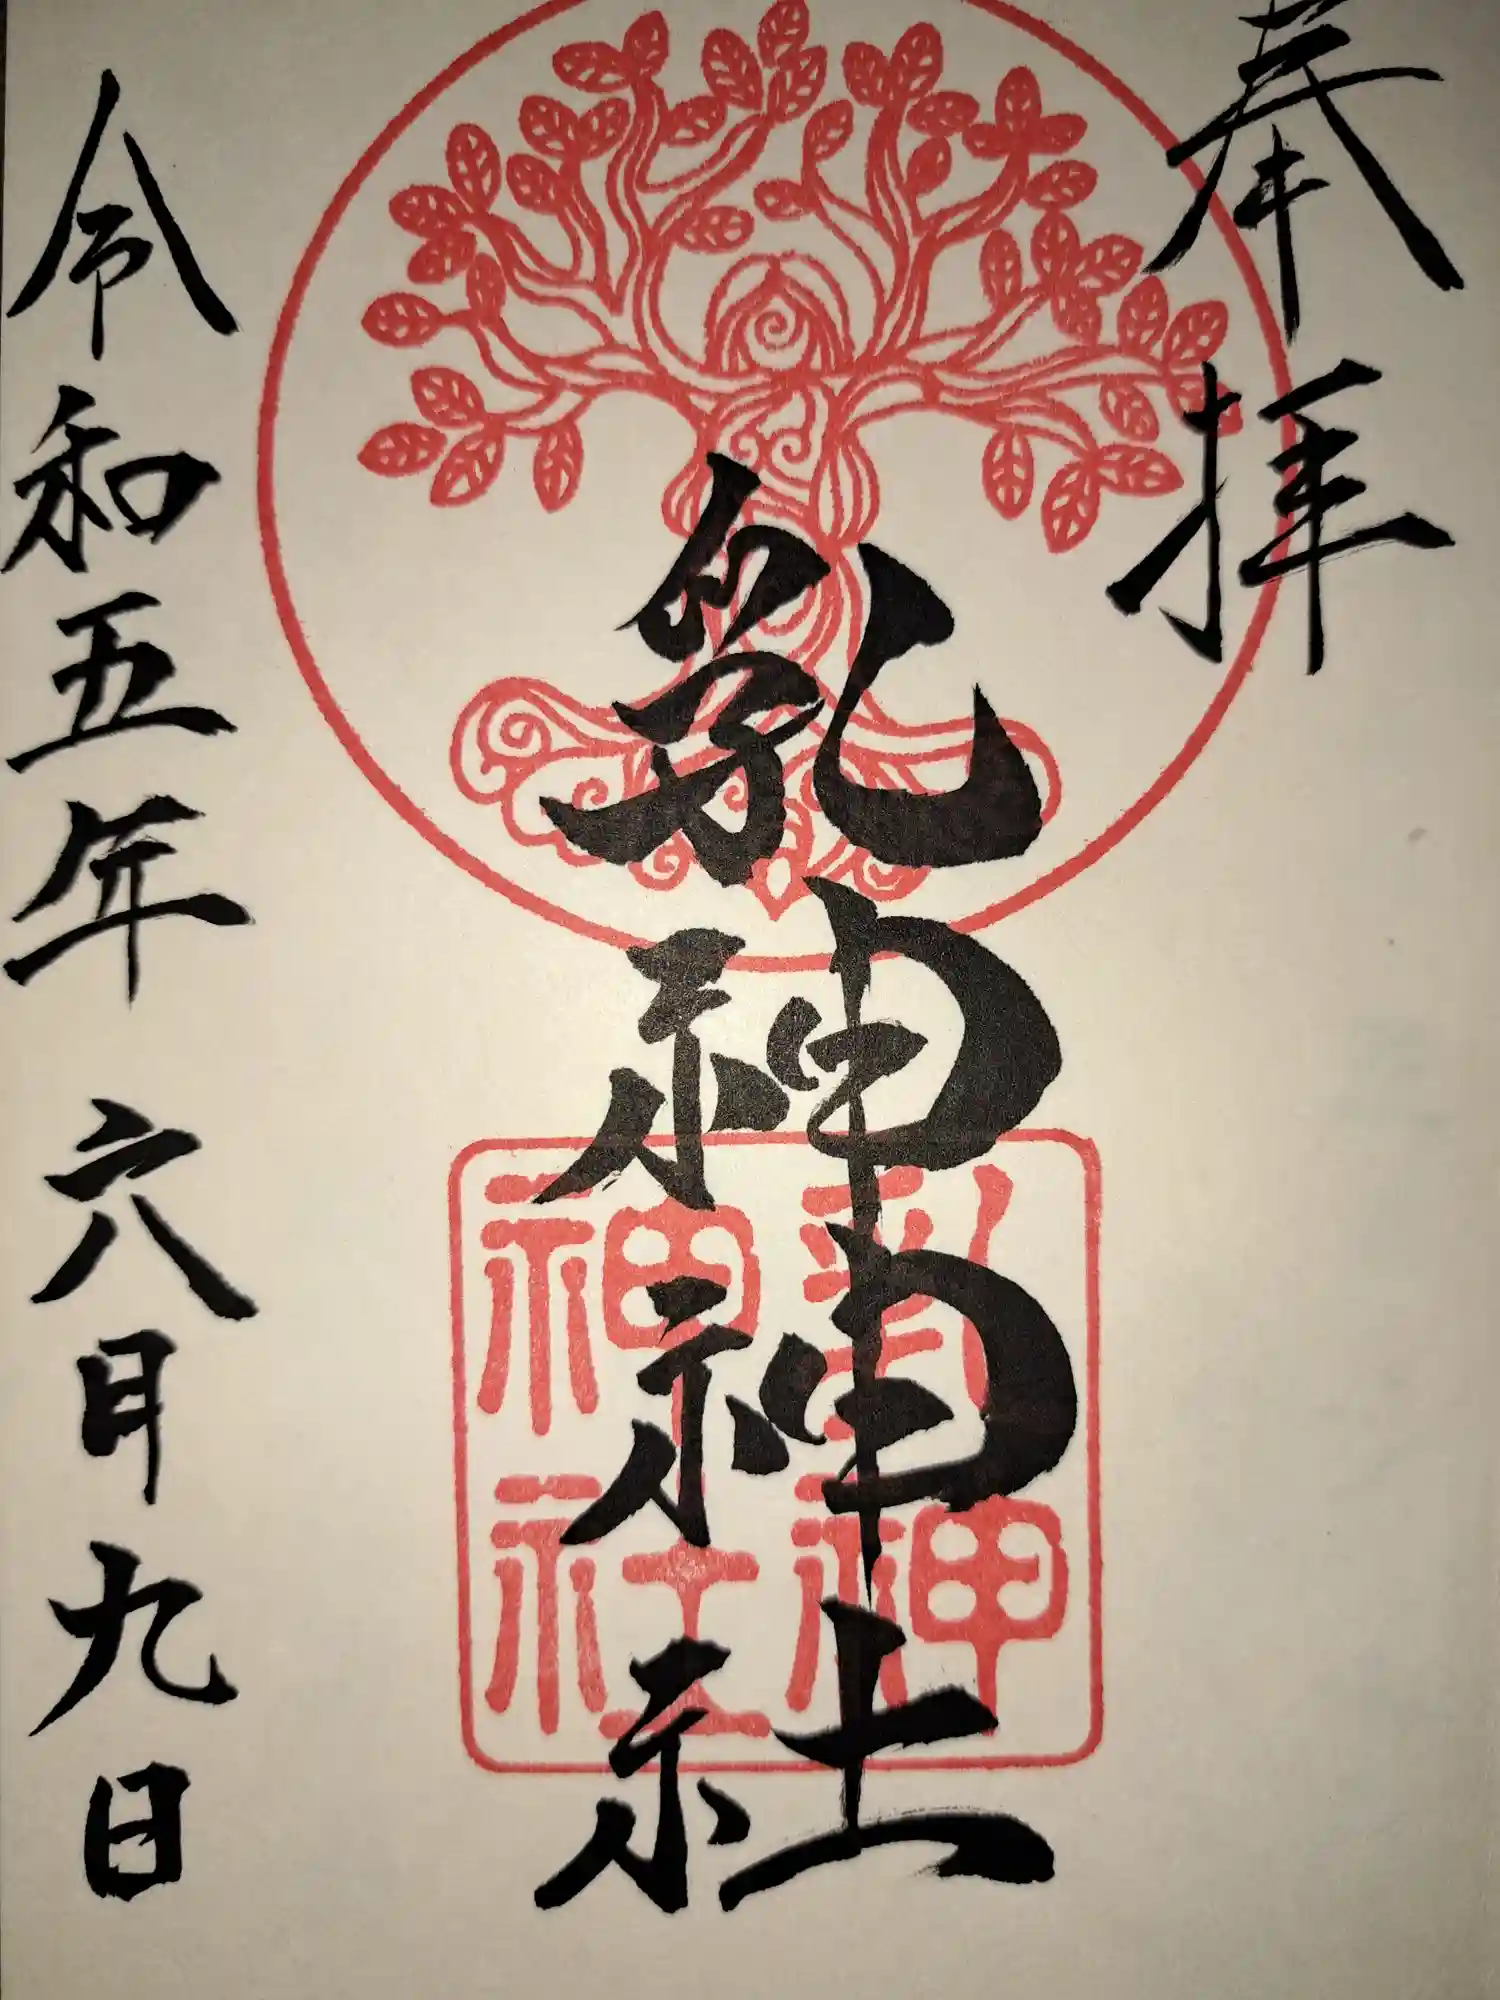 奉拝
乳神神社
乳神
神社
令和五年 六月九日